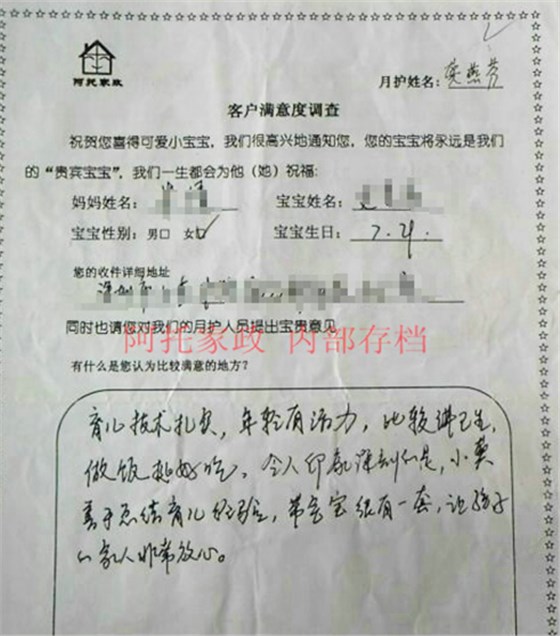 阿托家政
月护姓名：莫燕芳
客户满意度调查
祝贺您喜得可爱小宝宝，我们很高兴地通知您，您的宝宝将永远是我们
的“贵宾宝宝”，我们一生都会为他（她）祝福：
妈妈姓名： 宝宝姓名：
宝宝性别：男□ 女□ 宝宝生日：7.21.
您的收件详细地址
深圳市
同时也请您对我们的月护人员提出宝贵意见
阿托家政 内部存档
有什么是您认为比较满意的地方？
育儿技术扎实，年轻有活力，比较讲卫生，
做饭挺好吃，令人印象深刻的是，小莫
善于总结育儿经验，带宝宝很有一套，让孩子
的家人非常放心。